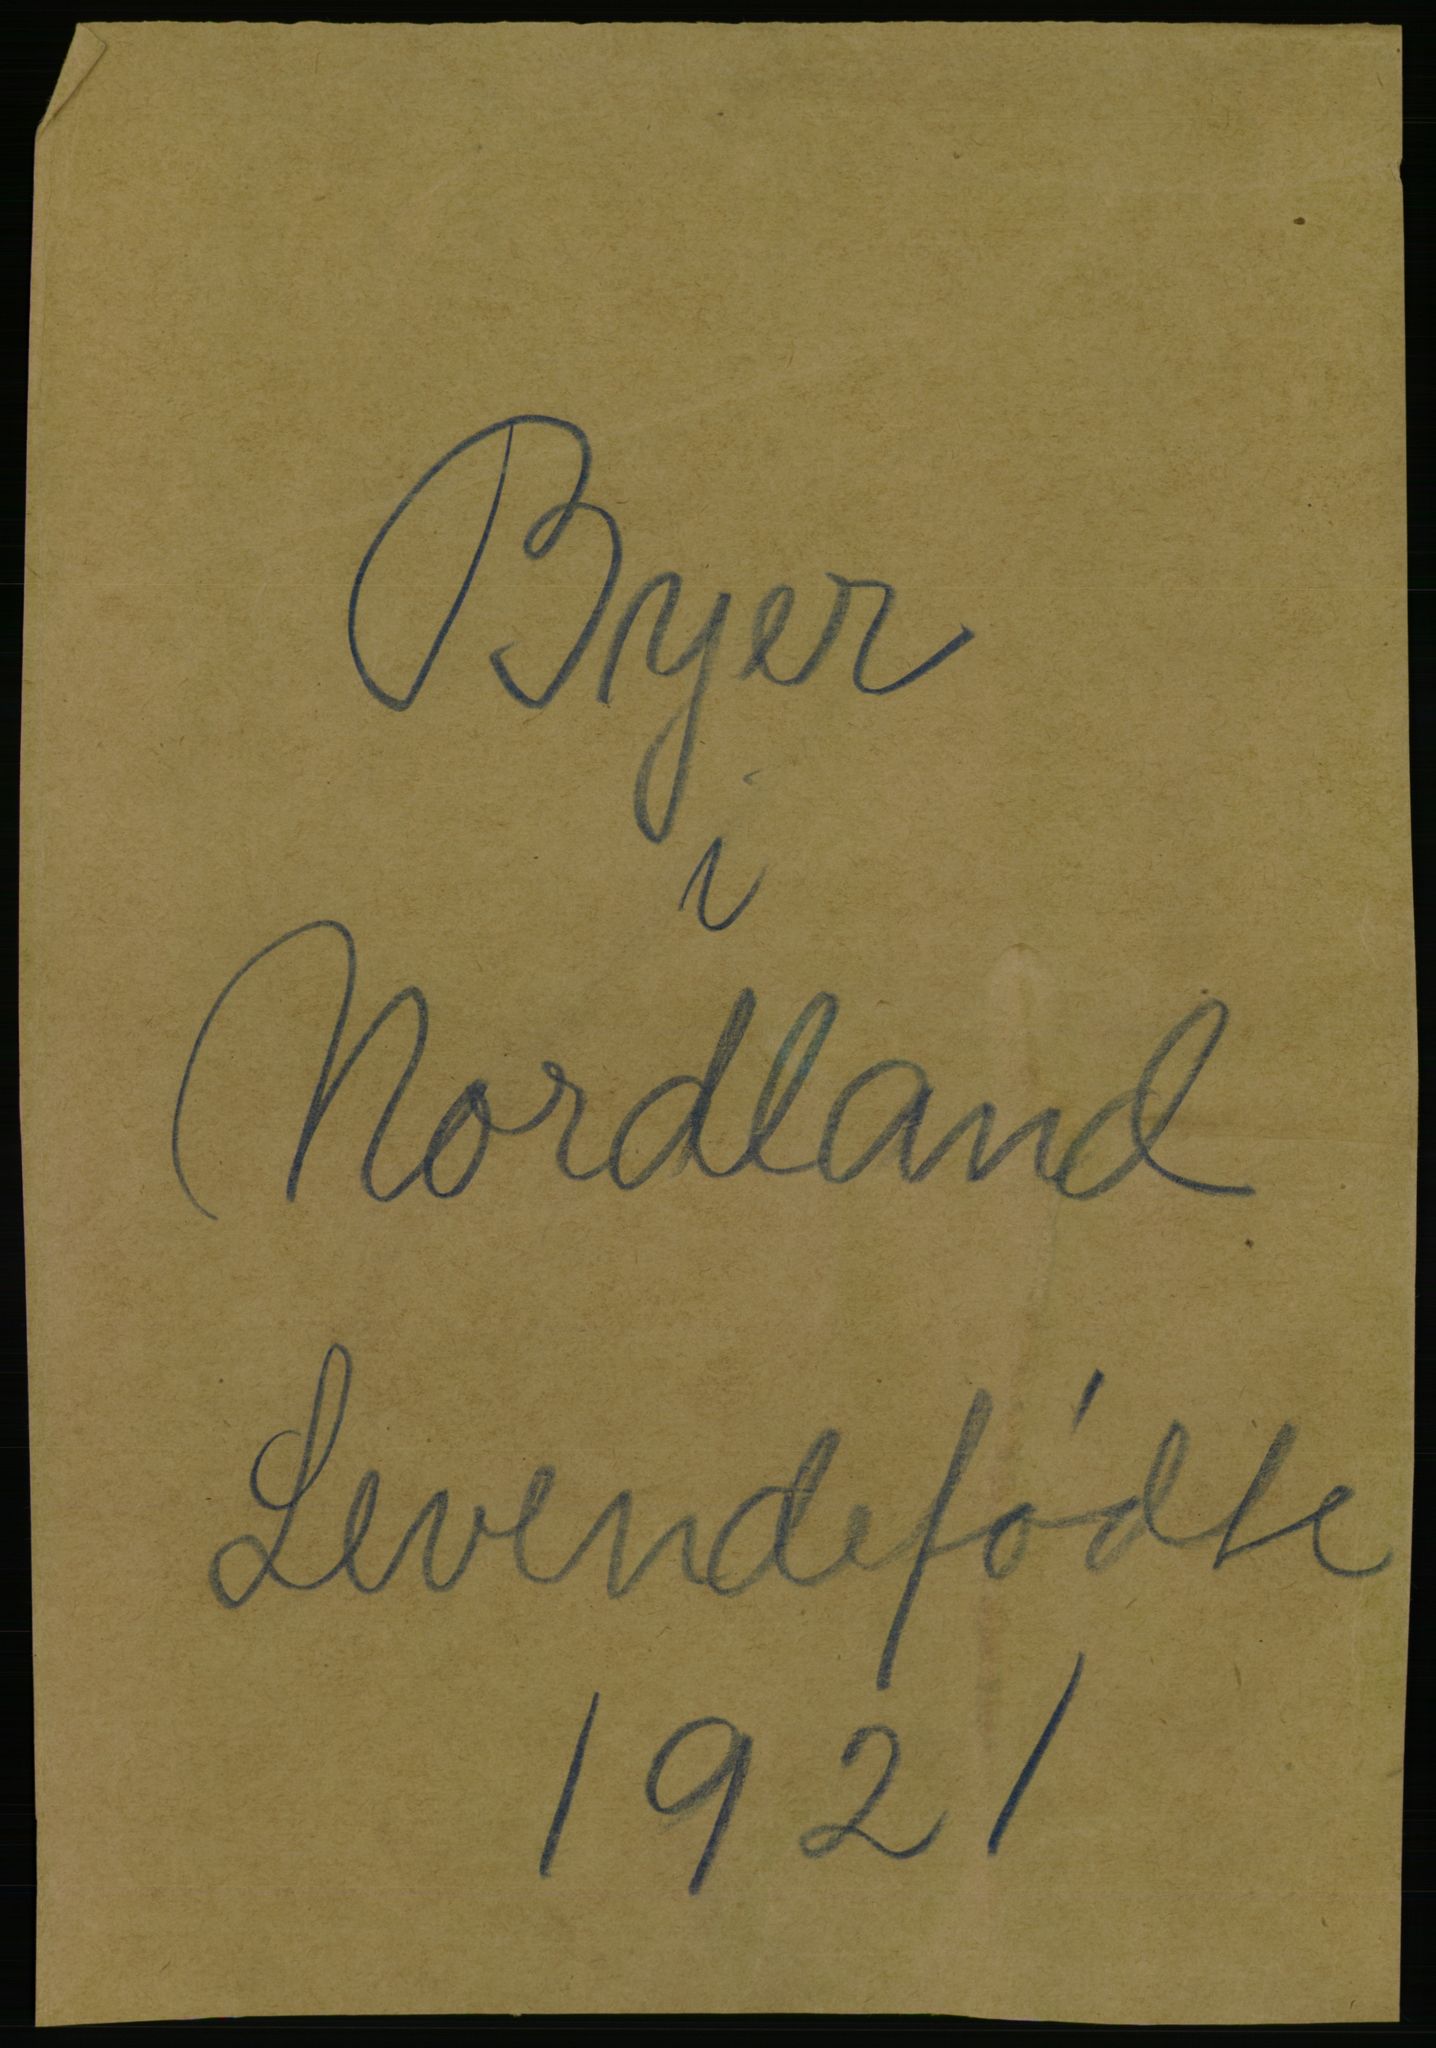 Byer
i
Nordland
Levendefødte
1921